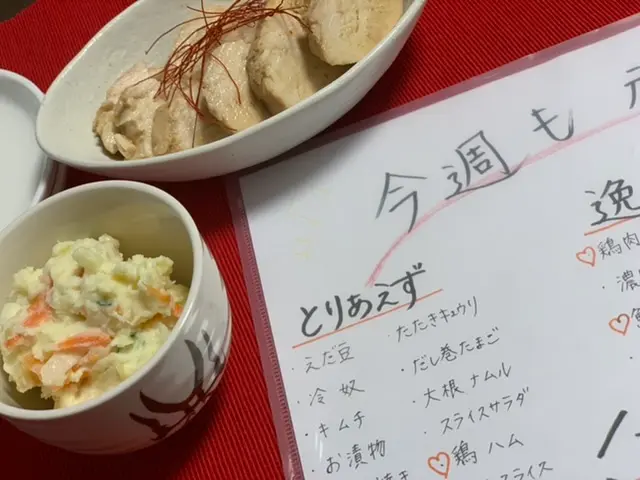 今週も
とりあえず
・えだ豆
・冷奴
・キムチ
・お漬物
・たたきキュウリ
・だし巻たまご
・大根ナムル
・スライスサラダ
♡鶏ハム
スライス
逸
♡鶏肉
・濃